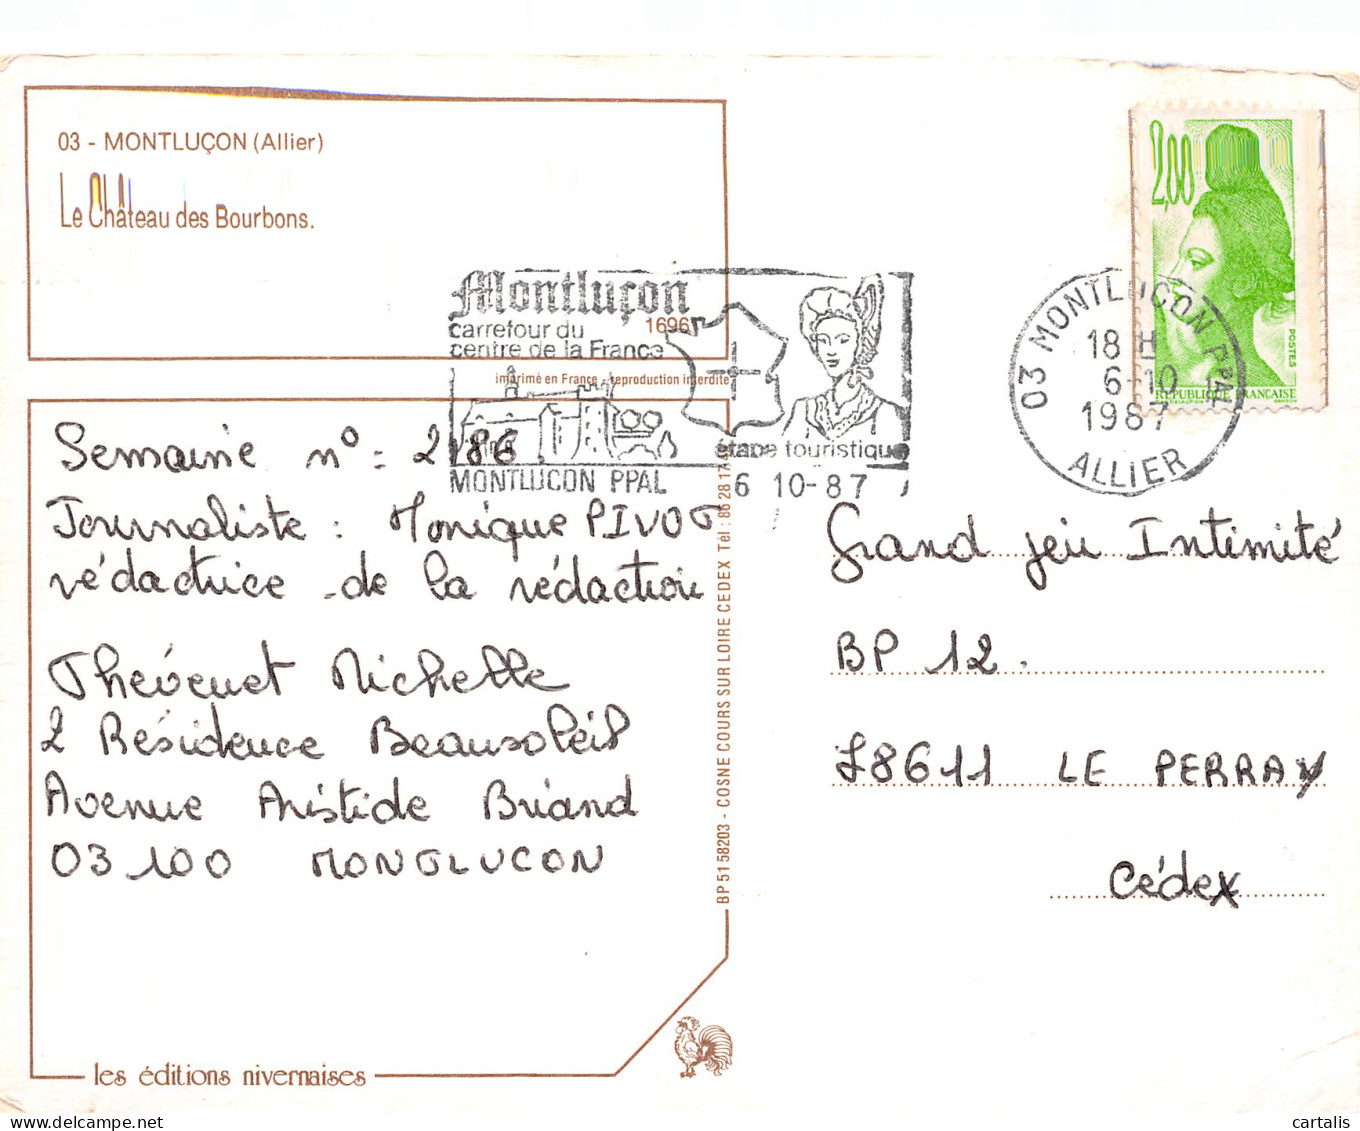 03 - MONTLUÇON (Allier)
Le Château des Bourbons.
1696
imprimé en France - reproduction interdite
Montluçon
carrefour du
centre de la France
étape touristique
MONTLUCON PPAL
6 10-87
2,00
POSTES
REPUBLIQUE FRANÇAISE
03 MONTLUCON PPAL
18 H
6-10
1987
ALLIER
Semaine n° = 2186.
Journaliste : Monique PIVOT
rédactrice de la rédaction
Thévenet Michelle
2 Résidence Beausoleil
Avenue Aristide Briand
03100 MONTLUCON
BP 51 58203 - COSNE COURS SUR LOIRE CEDEX Tél : 86 28 17
Grand jeu Intimité
BP 12.
78611 LE PERRAY
Cédex
les éditions nivernaises
delcampe.net
cartalis